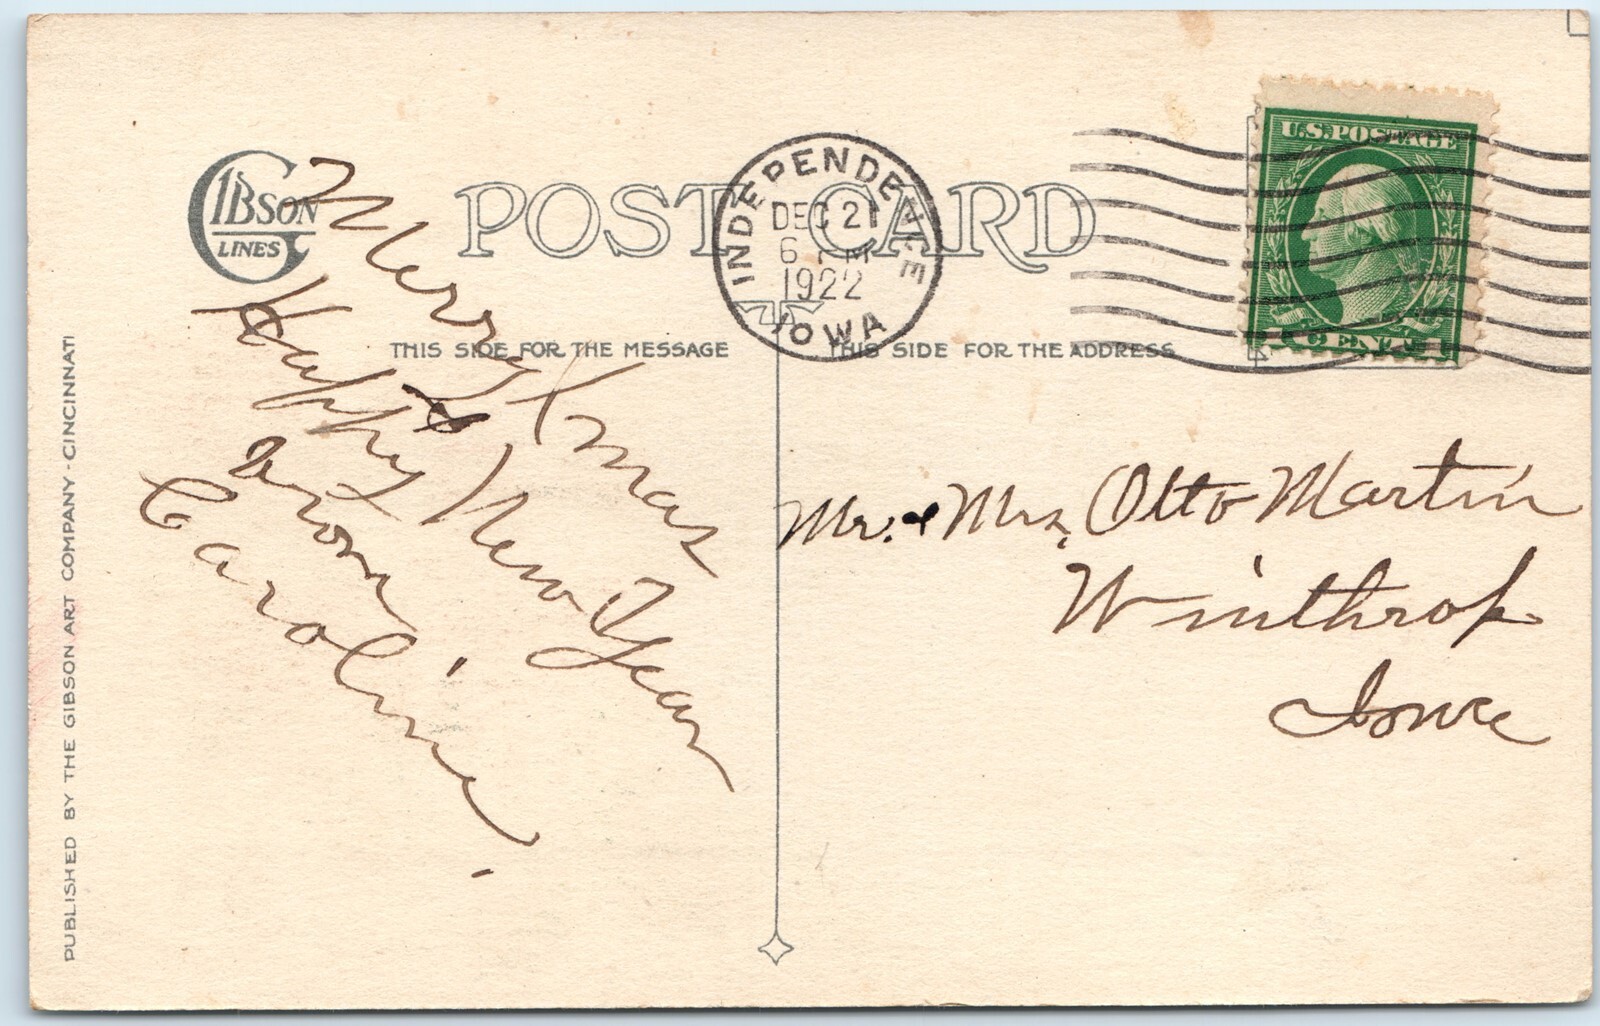 GIBSON
LINES
POST CARD
INDEPENDENCE
DEC 21
6 PM
1922
IOWA
U.S. POSTAGE
1 CENT 1
THIS SIDE FOR THE MESSAGE
THIS SIDE FOR THE ADDRESS
Merry Xmas
& Happy New Year
from
Caroline.
Mr. & Mrs. Otto Martin
Winthrop
Iowa
PUBLISHED BY THE GIBSON ART COMPANY - CINCINNATI